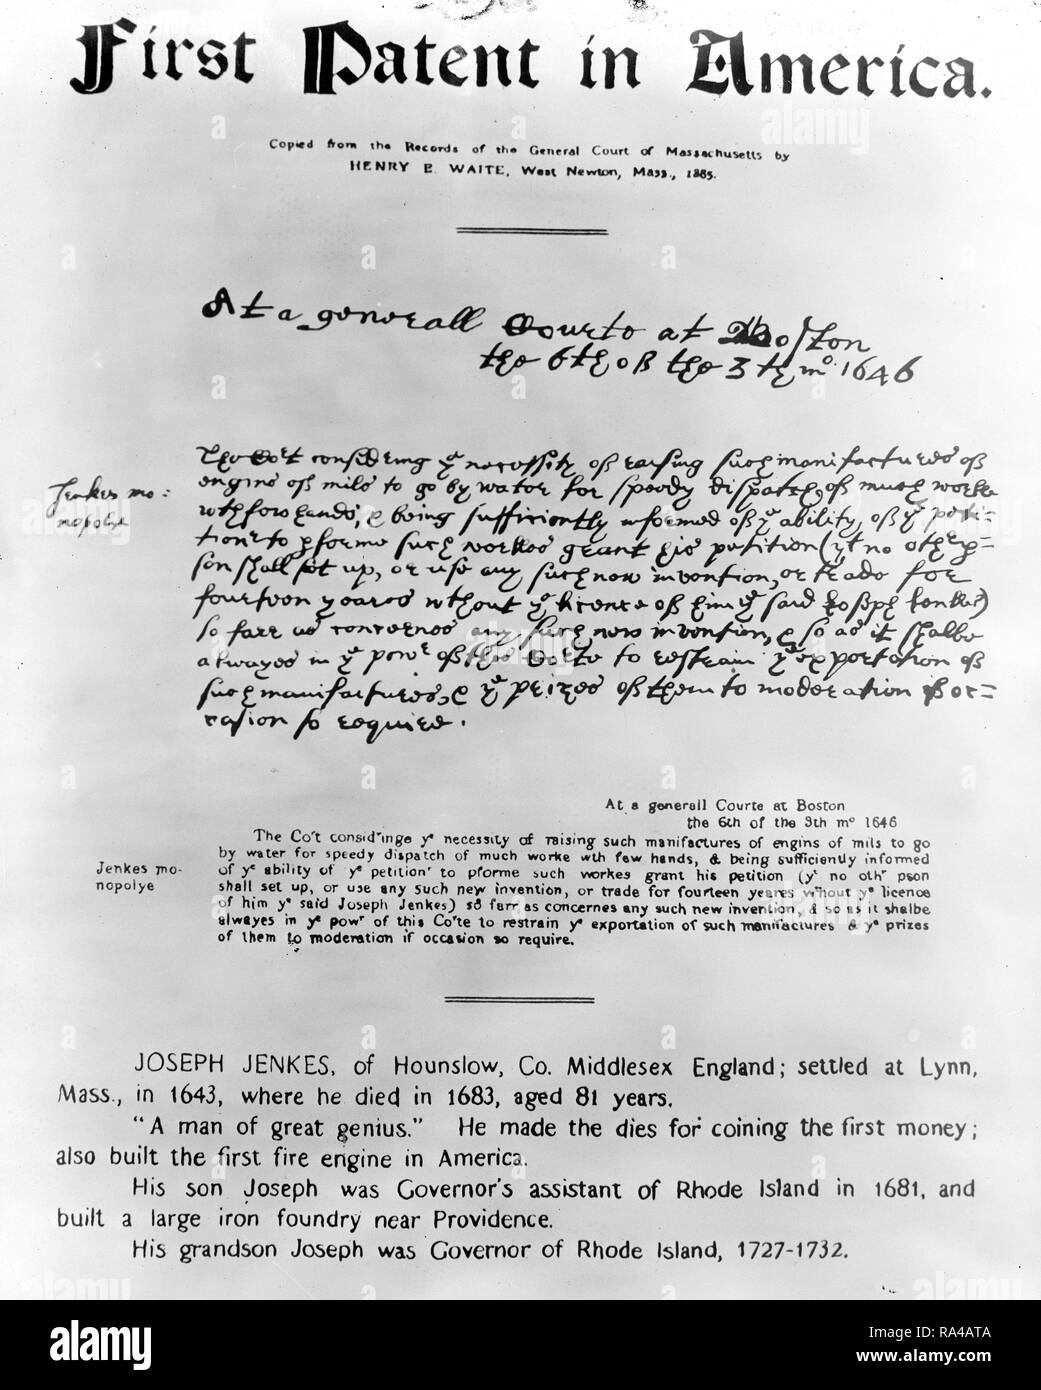 First Patent in America.
Copied from the Records of the General Court of Massachusetts by
HENRY E. WAITE, West Newton, Mass., 1885.
At a generall Courte at Boston
the 6th of the 3th mº 1646
Jenkes mo:
nopolye
The Cort considering yᵉ necessity of raising such manifactures of
engins of mils to go by water for speedy dispatch of much worke
wth few hands, & being sufficiently informed of yᵉ ability of yᵉ peti=
tionʳ to pforme such workes grant his petition (yᵗ no othʳ p=
son shall set up, or use any such new invention, or trade for
fourteen yeares without yᵉ licence of him yᵉ said Joseph Jenkes)
so farr as concernes any such new invention, & so as it shalbe
alwayes in yᵉ powʳ of this Corte to restrain yᵉ exportation of
such manifactures, & yᵉ prizes of them to moderation if oc=
casion so require.
At a generall Courte at Boston
the 6th of the 3th mº 1646
Jenkes mo-
nopolye
The Co't consid'inge yᵉ necessity of raising such manifactures of engins of mils to go
by water for speedy dispatch of much worke wth few hands, & being sufficiently informed
of yᵉ ability of yᵉ petitionʳ to pforme such workes grant his petition (yᵗ no othʳ pson
shall set up, or use any such new invention, or trade for fourteen yeares without yᵉ licence
of him yᵉ said Joseph Jenkes) so farr as concernes any such new invention, & so as it shalbe
alwayes in yᵉ powʳ of this Co'te to restrain yᵉ exportation of such manifactures & yᵉ prizes
of them to moderation if occasion so require.
JOSEPH JENKES, of Hounslow, Co. Middlesex England; settled at Lynn,
Mass., in 1643, where he died in 1683, aged 81 years.
"A man of great genius." He made the dies for coining the first money;
also built the first fire engine in America.
His son Joseph was Governor's assistant of Rhode Island in 1681, and
built a large iron foundry near Providence.
His grandson Joseph was Governor of Rhode Island, 1727-1732.
alamy
Image ID: RA4ATA
www.alamy.com